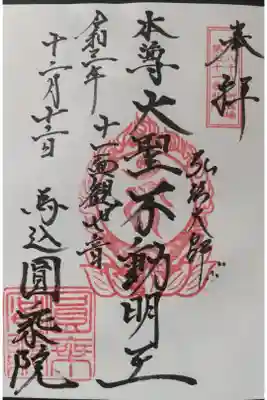 奉拝
弘法大師
本尊 大聖不動明王
十一面観世音
令和三年
十二月十二日
馬込 圓乗院